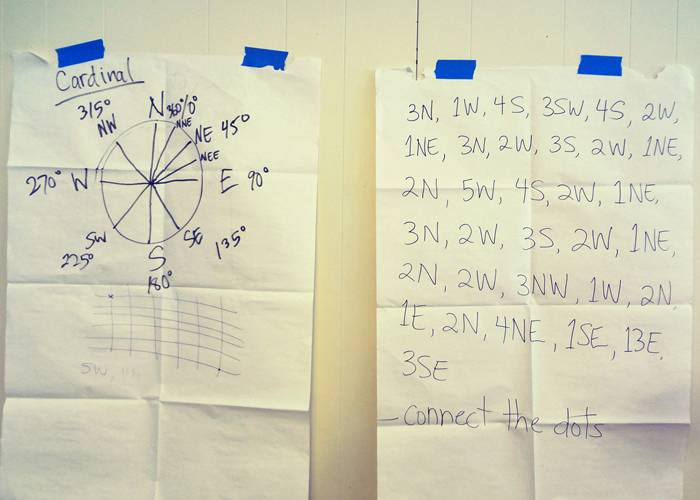 Cardinal
315°
N 360°/0°
NW
NNE
NE 45°
NEE
270° W
E 90°
SW
SE
225°
135°
S
180°
x
SW,
3N, 1W, 4S, 3SW, 4S, 2W,
1NE, 3N, 2W, 3S, 2W, 1NE,
2N, 5W, 4S, 2W, 1NE,
3N, 2W, 3S, 2W, 1NE,
2N, 2W, 3NW, 1W, 2N,
1E, 2N, 4NE, 1SE, 13E,
3SE
- connect the dots